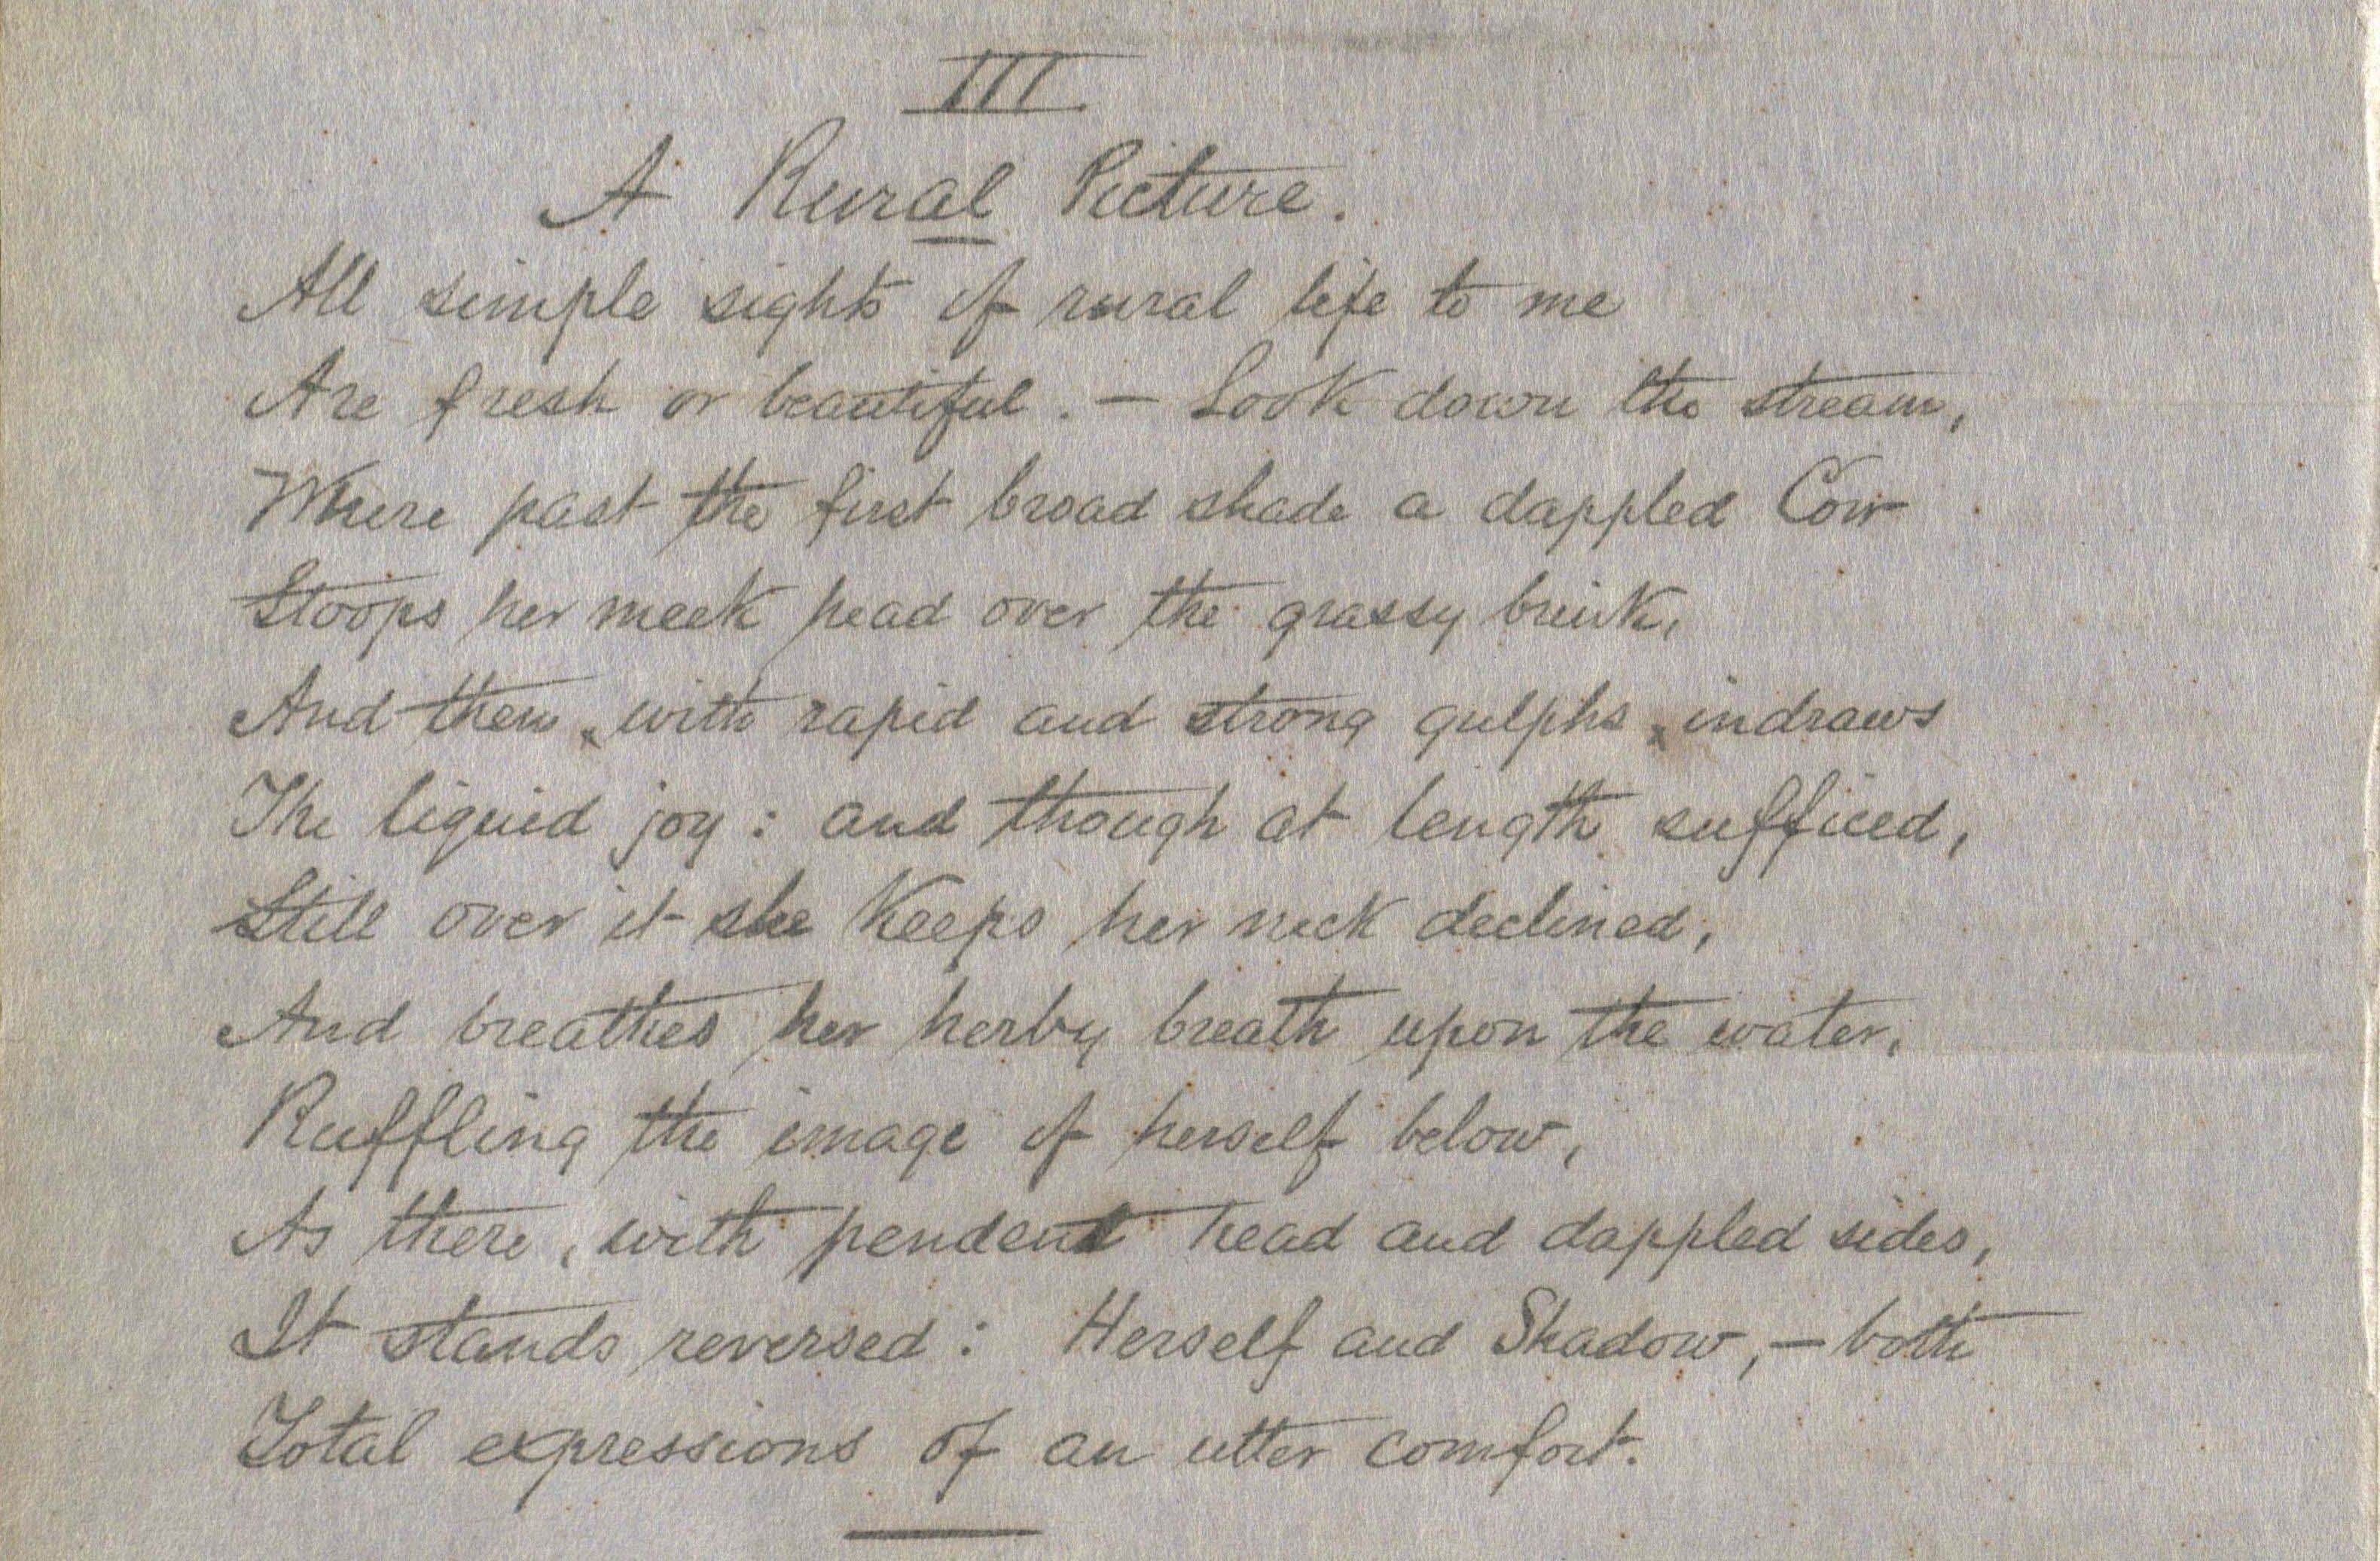 III
A Rural Picture.
All simple sights of rural life to me
Are fresh or beautiful. — Look down the stream,
Where past the first broad shade a dappled Cow
Stoops her meek head over the grassy brink,
And then, with rapid and strong gulphs, indraws
The liquid joy: and though at length sufficed,
Still over it she keeps her neck declined,
And breathes her herby breath upon the water,
Ruffling the image of herself below,
As there, with pendent head and dappled sides,
It stands reversed: Herself and Shadow, — both
Total expressions of an utter comfort.